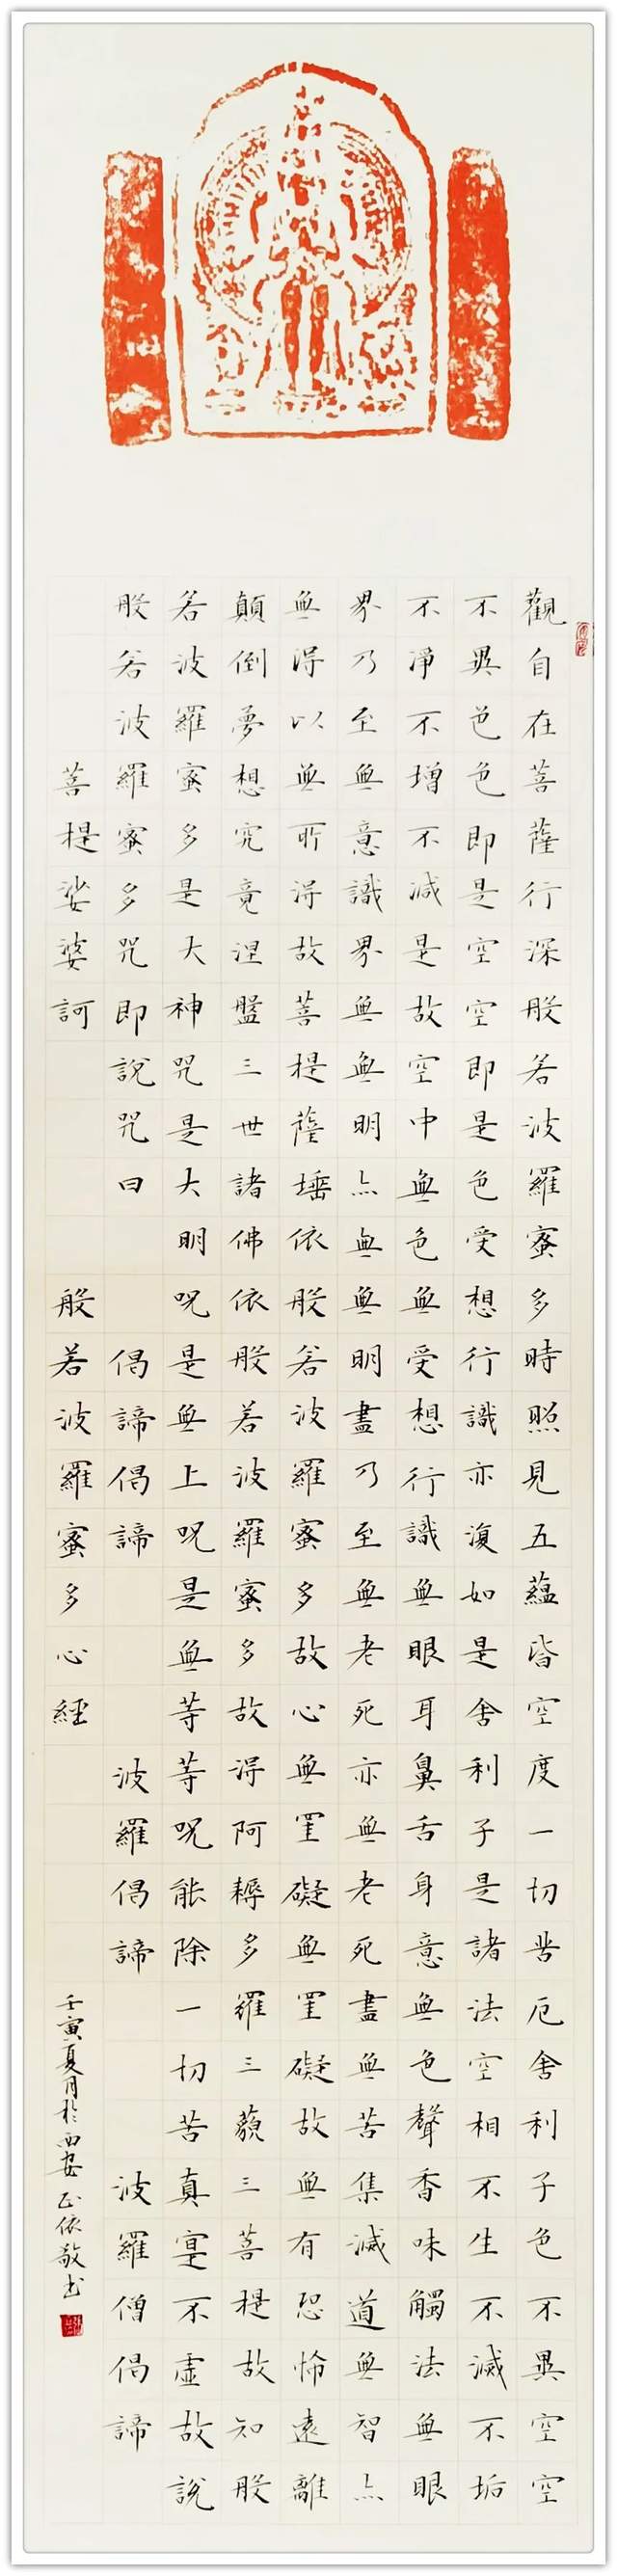 觀自在菩薩行深般若波羅蜜多時照見五蘊皆空度一切苦厄舍利子色不異空空
不異色色即是空空即是色受想行識亦復如是舍利子是諸法空相不生不滅不垢
不淨不增不減是故空中無色無受想行識無眼耳鼻舌身意無色聲香味觸法無眼
界乃至無意識界無無明亦無無明盡乃至無老死亦無老死盡無苦集滅道無智亦
無得以無所得故菩提薩埵依般若波羅蜜多故心無罣礙無罣礙故無有恐怖遠離
顛倒夢想究竟涅盤三世諸佛依般若波羅蜜多故得阿耨多羅三藐三菩提故知般
若波羅蜜多是大神咒是大明呪是無上呪是無等等呪能除一切苦真寔不虛故說
般若波羅蜜多咒即說咒曰 偈諦偈諦 波羅偈諦 波羅僧偈諦
菩提娑婆訶 般若波羅蜜多心經
壬寅夏月於西安 正依敬书